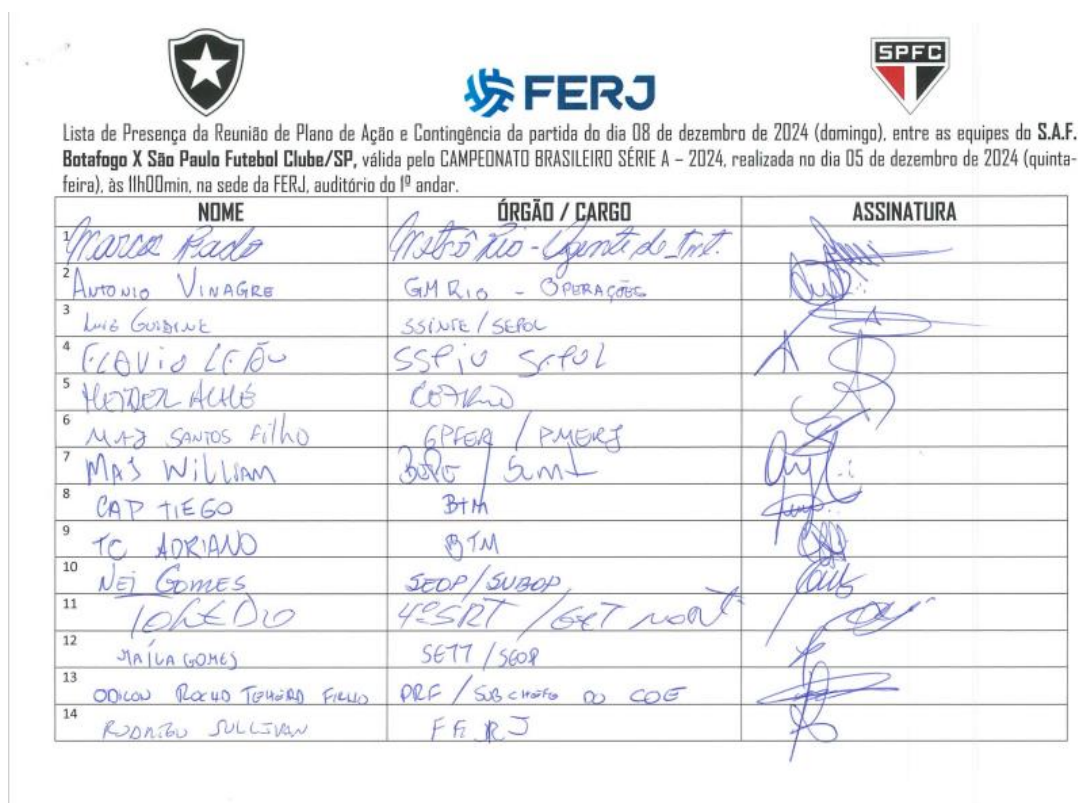 SPFC
FERJ
Lista de Presença da Reunião de Plano de Ação e Contingência da partida do dia 08 de dezembro de 2024 (domingo), entre as equipes do S.A.F.
Botafogo X São Paulo Futebol Clube/SP, válida pelo CAMPEONATO BRASILEIRO SÉRIE A – 2024, realizada no dia 05 de dezembro de 2024 (quinta-
feira), às 11h00min, na sede da FERJ, auditório do 1º andar.
NOME ÓRGÃO / CARGO ASSINATURA
1 Metrô Rio - Agente de
2 ANTONIO VINAGRE GM RIO - OPERAÇÕES
3 LUIS SSINTE / SEPOL
4 FLAVIO LEÃO SEPOL
5
6 MAJ SANTOS Filho / PMERJ
7 MAJ WILLIAM
8 CAP TIEGO BTM
9 TC ADRIANO BTM
10 NEI GOMES SEOP / SUBOP
11 TOLEDO
12 MAÍLA GOMES SETT / SEOP
13 ODILON FILHO PRF / SUBCHEFE DO COE
14 RODRIGO SULLIVAN FERJ